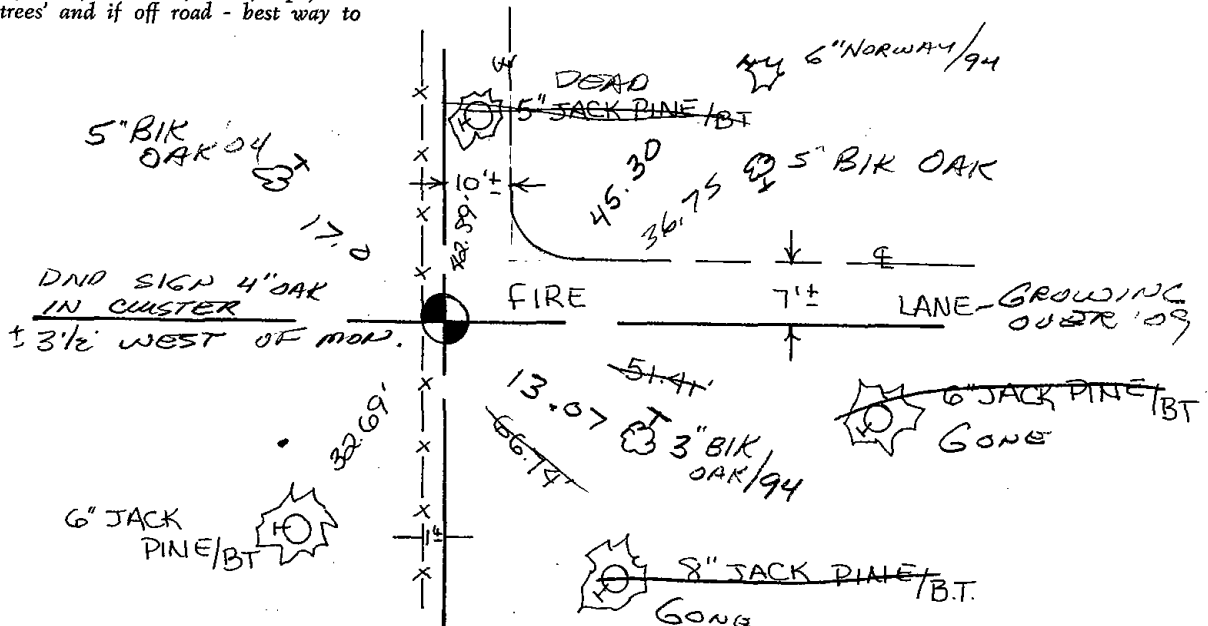 trees' and if off road - best way to
DEAD
5" JACK PINE/BT
6" NORWAY/94
5" BIK
OAK '04
5" BIK OAK
10'±
45.30
36.75
42.99'
17.0
DND SIGN 4" OAK
IN CLUSTER
± 3 1/2' WEST OF MON.
FIRE
7'±
LANE - GROWING
OVER '09
51.41'
13.07
66.74'
3" BIK
OAK/94
6" JACK PINE/BT
GONE
32.69'
6" JACK
PINE/BT
1'±
8" JACK PINE/B.T.
GONE